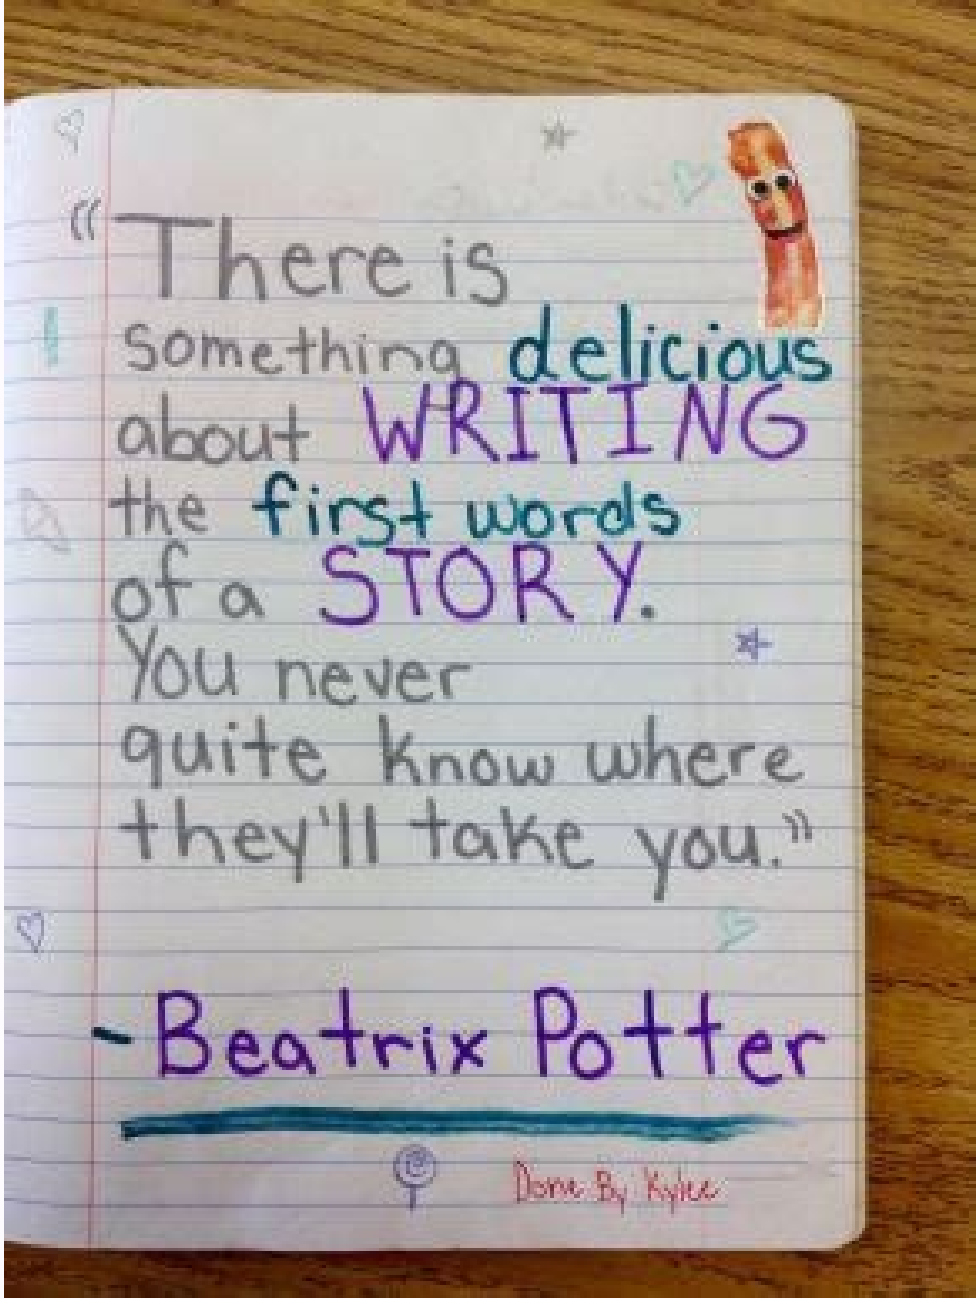 “There is
something delicious
about WRITING
the first words
of a STORY.
You never
quite know where
they'll take you.”
- Beatrix Potter
Done By Kylee